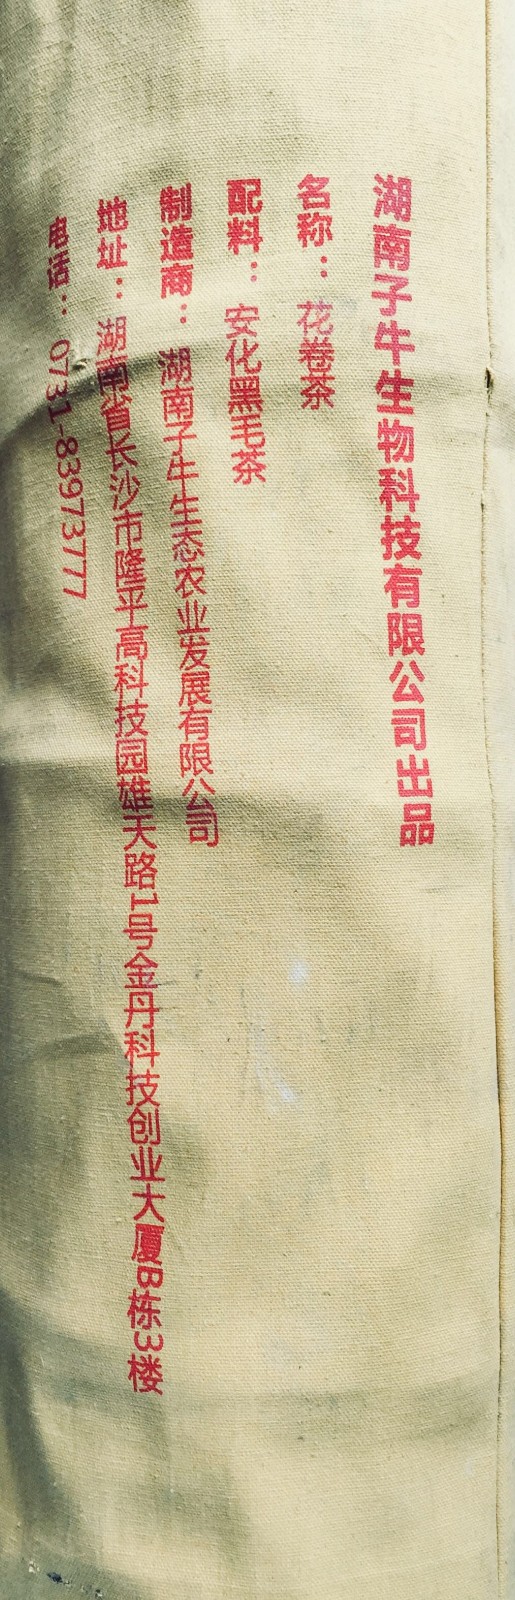 湖南子牛生物科技有限公司出品
名称：花卷茶
配料：安化黑毛茶
制造商：湖南子牛生态农业发展有限公司
地址：湖南省长沙市隆平高科技园雄天路1号金丹科技创业大厦B栋3楼
电话：0731-83973777